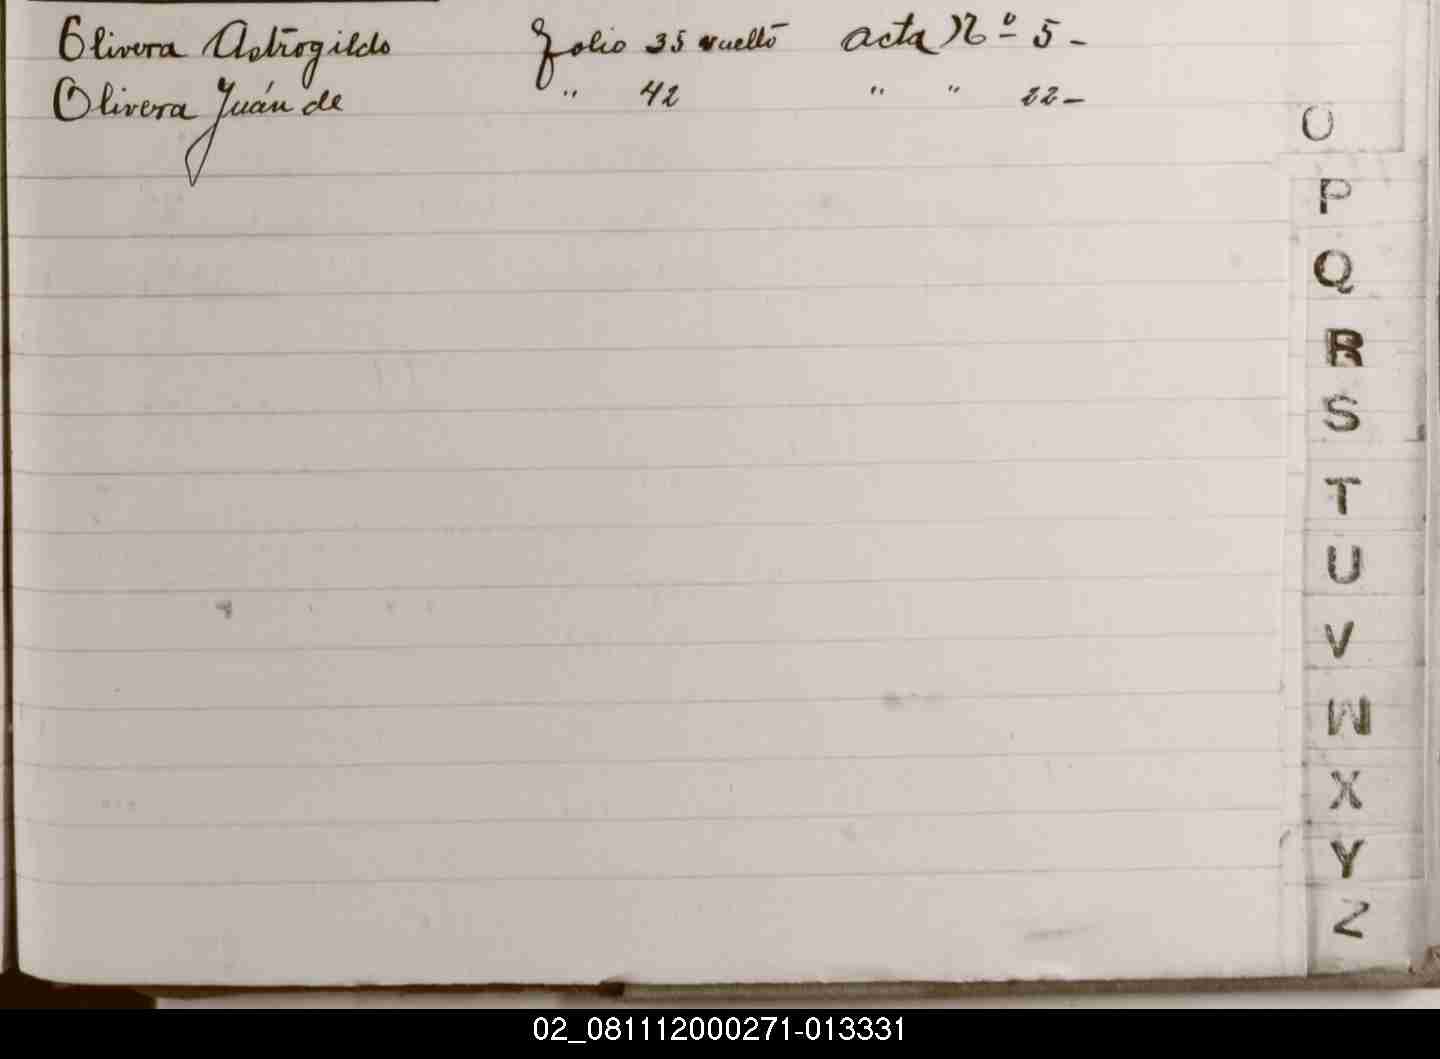 Olivera Astrogildo folio 35 vuelto acta Nº 5-
Olivera Juán de " 42 " " 22-
O
P
Q
R
S
T
U
V
W
X
Y
Z
02_081112000271-013331